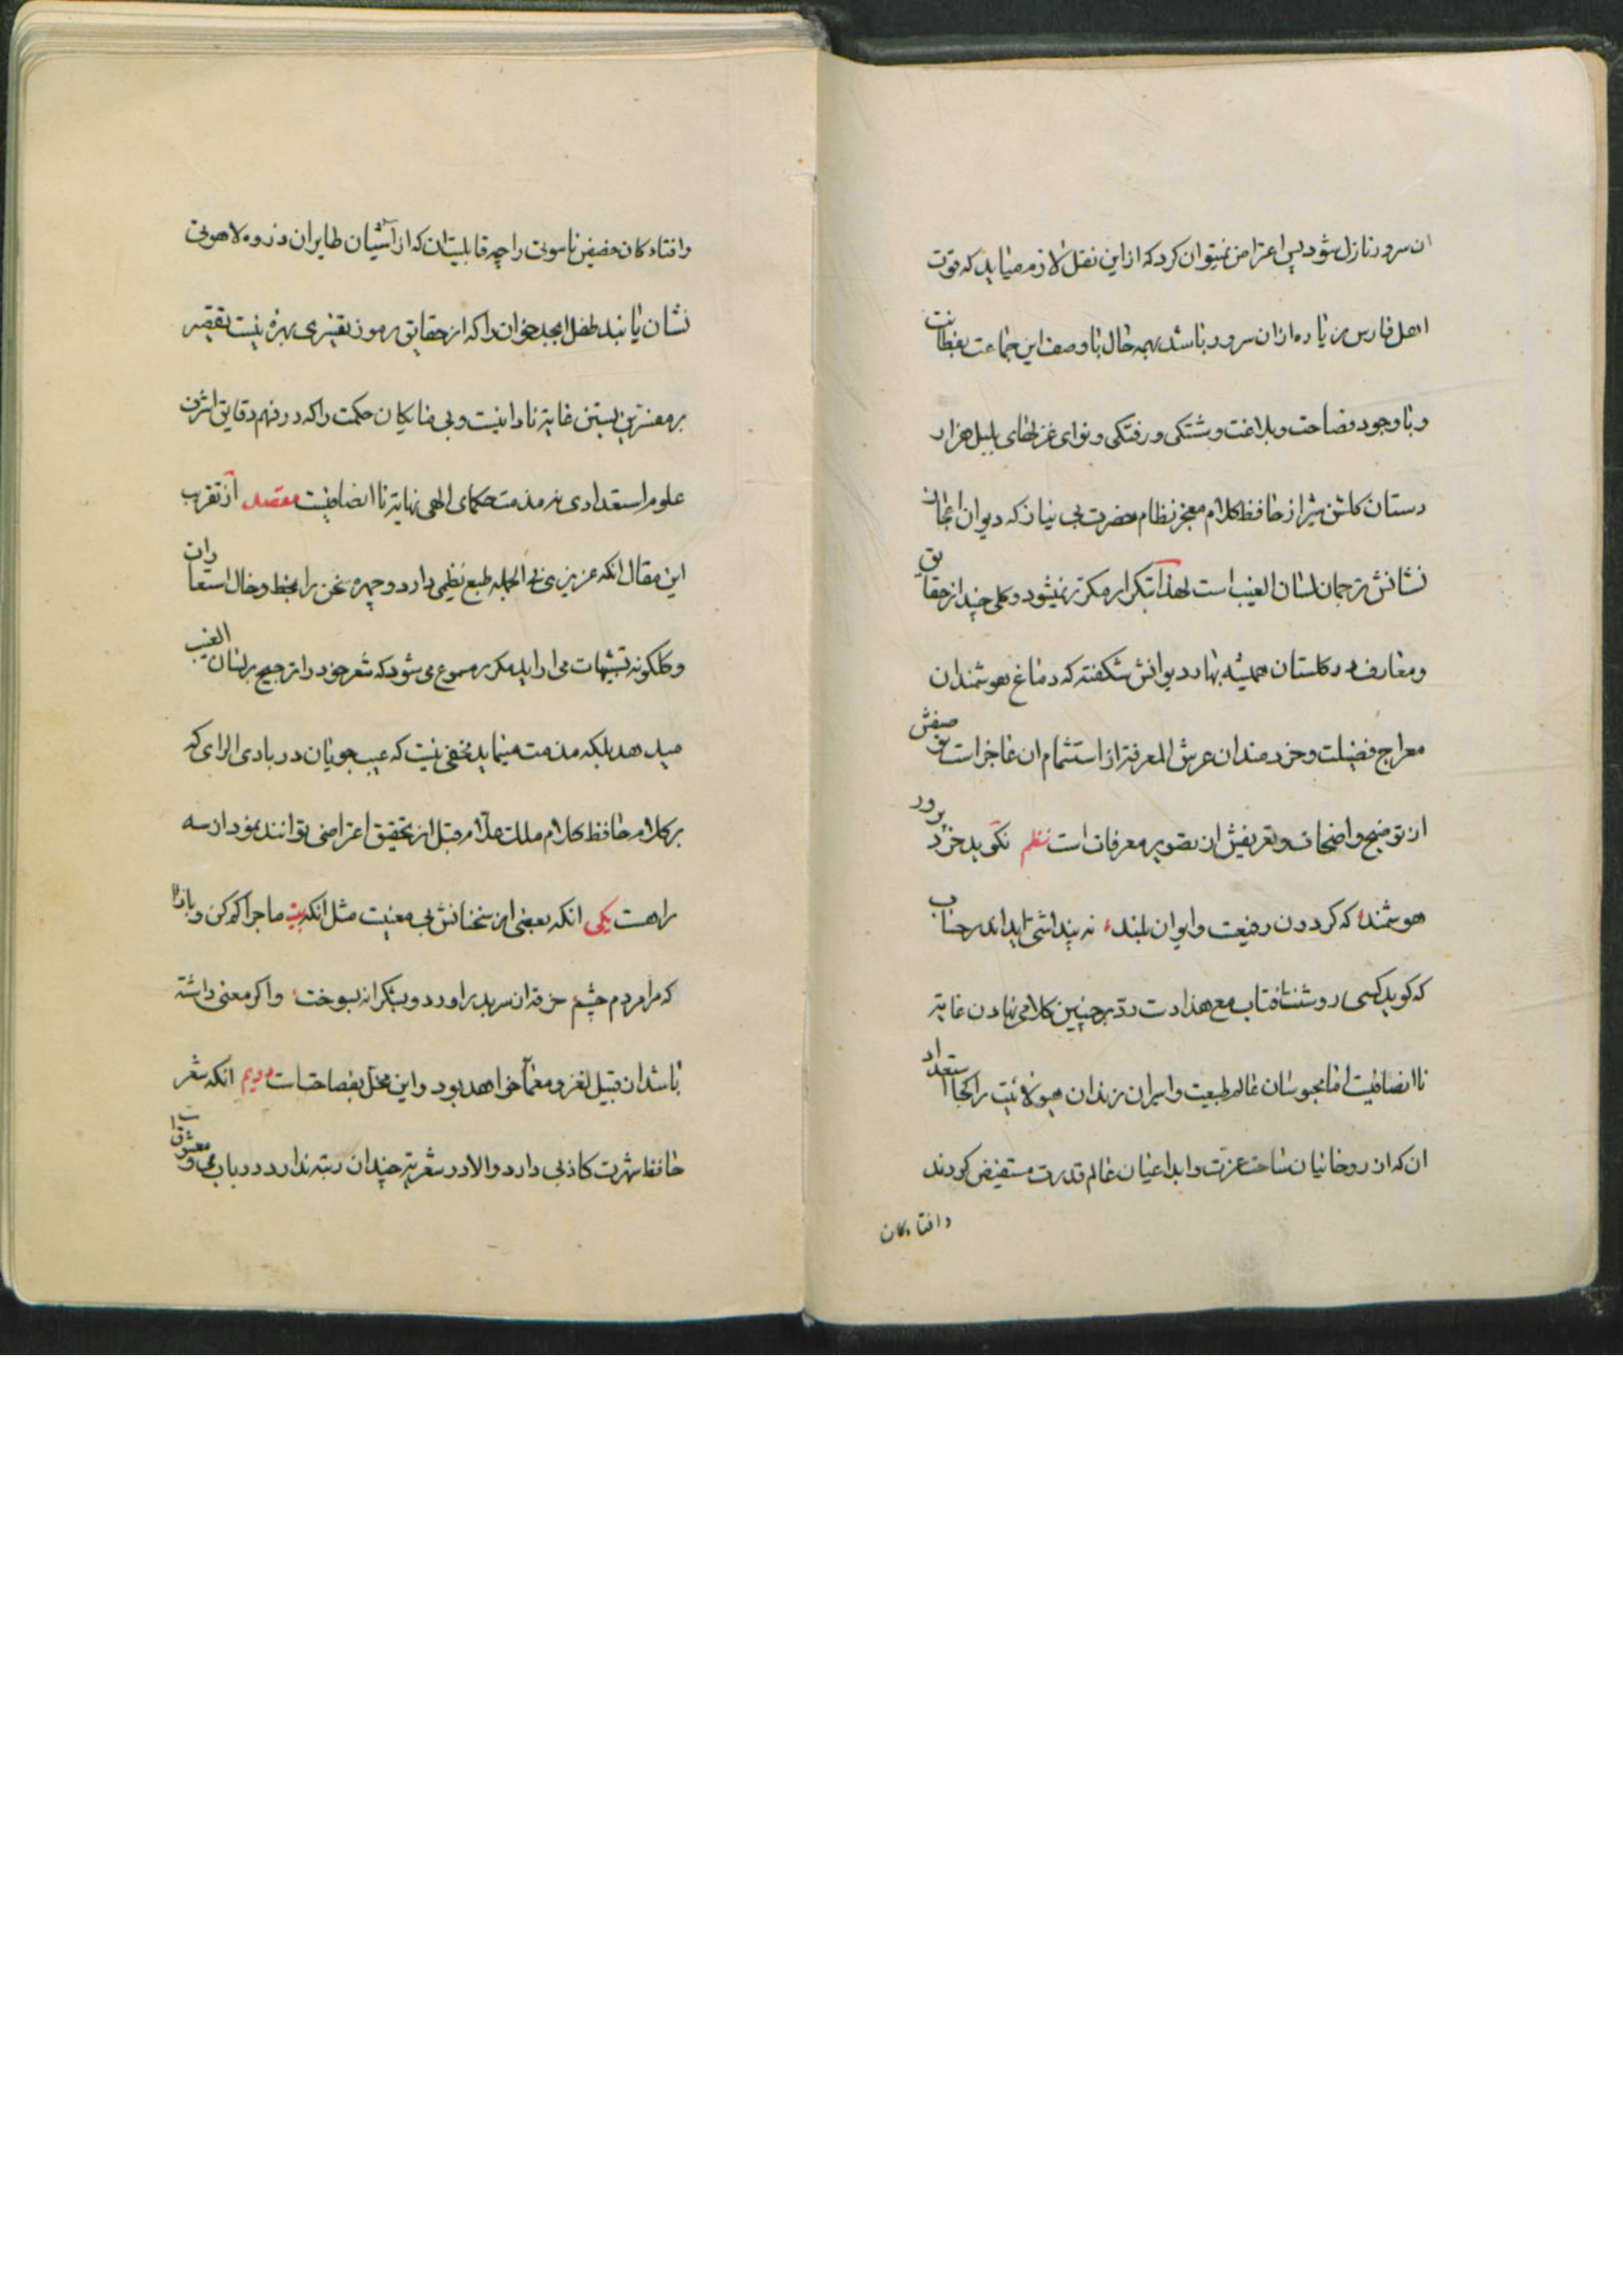 ان سرور نازل شود پس اعتراض نمیتوان کرد که از این نقل لازم میاید که قوت
اهل فارس زیاده از ان سرور باشد بهمه حال با وصف این جماعت بفطانت
و با وجود فصاحت و بلاغت و شستکی و رفتکی و نوای غزلهای بلبل هزار
دستان کلشن شیراز حافظ کلام معجز نظام حضرت بی نیاز که دیوان اعجاز
نشانش ترجمان لسان الغیب است لهذا بتکرار مکرر نمیشود و کلی چند از حقایق
و معارف در کلستان همیشه بهار دیوانش شکفته که دماغ هوشمندان
معراج فضیلت و خردمندان عرش المعرفة از استشمام ان عاجز است توصیفش
از توضیح واضحات و تعریفش از تصویر معرفات است نظم نکوید خرد پرور
هوشمند که کردون رفیعت و ایوان بلند نه پنداشتی اید اندر حساب
که کوید کسی روشنست افتاب مع هذا دست رد بر چنین کلامی نهادن غایة
نا انصافیست اما محبوسان عالم طبیعت و اسیران زندان هیولائیت را کجا استعداد
ان که از روحانیان ساحت عزت و ابداعیان عالم قدرت مستفیض کردند
وافتادکان
وافتادکان حضیض ناسوتی را چه قابلیت ان که از آشیان طایران ذروه لاهوتی
نشان یابند طفل ابجد خوان را که از حقایق رموز تفسیری بهره نیست تقصیر
بر مفسرین بستن غایة نادانیست و بی مایکان حکمت را که در فهم دقایق اشرف
علوم استعدادی نه مذمت حکمای الهی نهایة نا انصافیست مقصد از تقریب
این مقال انکه عزیزی فی الجمله طبع نظمی دارد و چهره سخن را بخط و خال استعارات
و کلکونه تشبیهات می اراید مکرر مسموع می شود که شعر خود را ترجیح بر لسان الغیب
میدهد بلکه مذمت مینماید مخفی نیست که عیب جویان در بادی الرای که
بر کلام حافظ کلام ملک علام قبل از تحقیق اعتراضی توانند نمود از سه
راهست یکی انکه بعضی از سخنانش بی معنیست مثل انکه بیت ماجرا کم کن و بازا
که مرا مردم چشم خرقه از سر بدر اورد و بشکرانه بسوخت و اکر معنی داشته
باشد از قبیل لغز و معما خواهد بود و این مخل بفصاحتست دویم انکه شعر
حافظ شهرت کاذبی دارد و الا در شعریة چندان رتبه ندارد در باب می و معشوقست